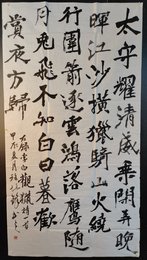 太守耀清威乘閑弄晚
暉江沙橫獵騎山火繞
行圍箭逐雲鴻落鷹隨
月兔飛不知白日暮歡
賞夜方歸
李白觀獵詩